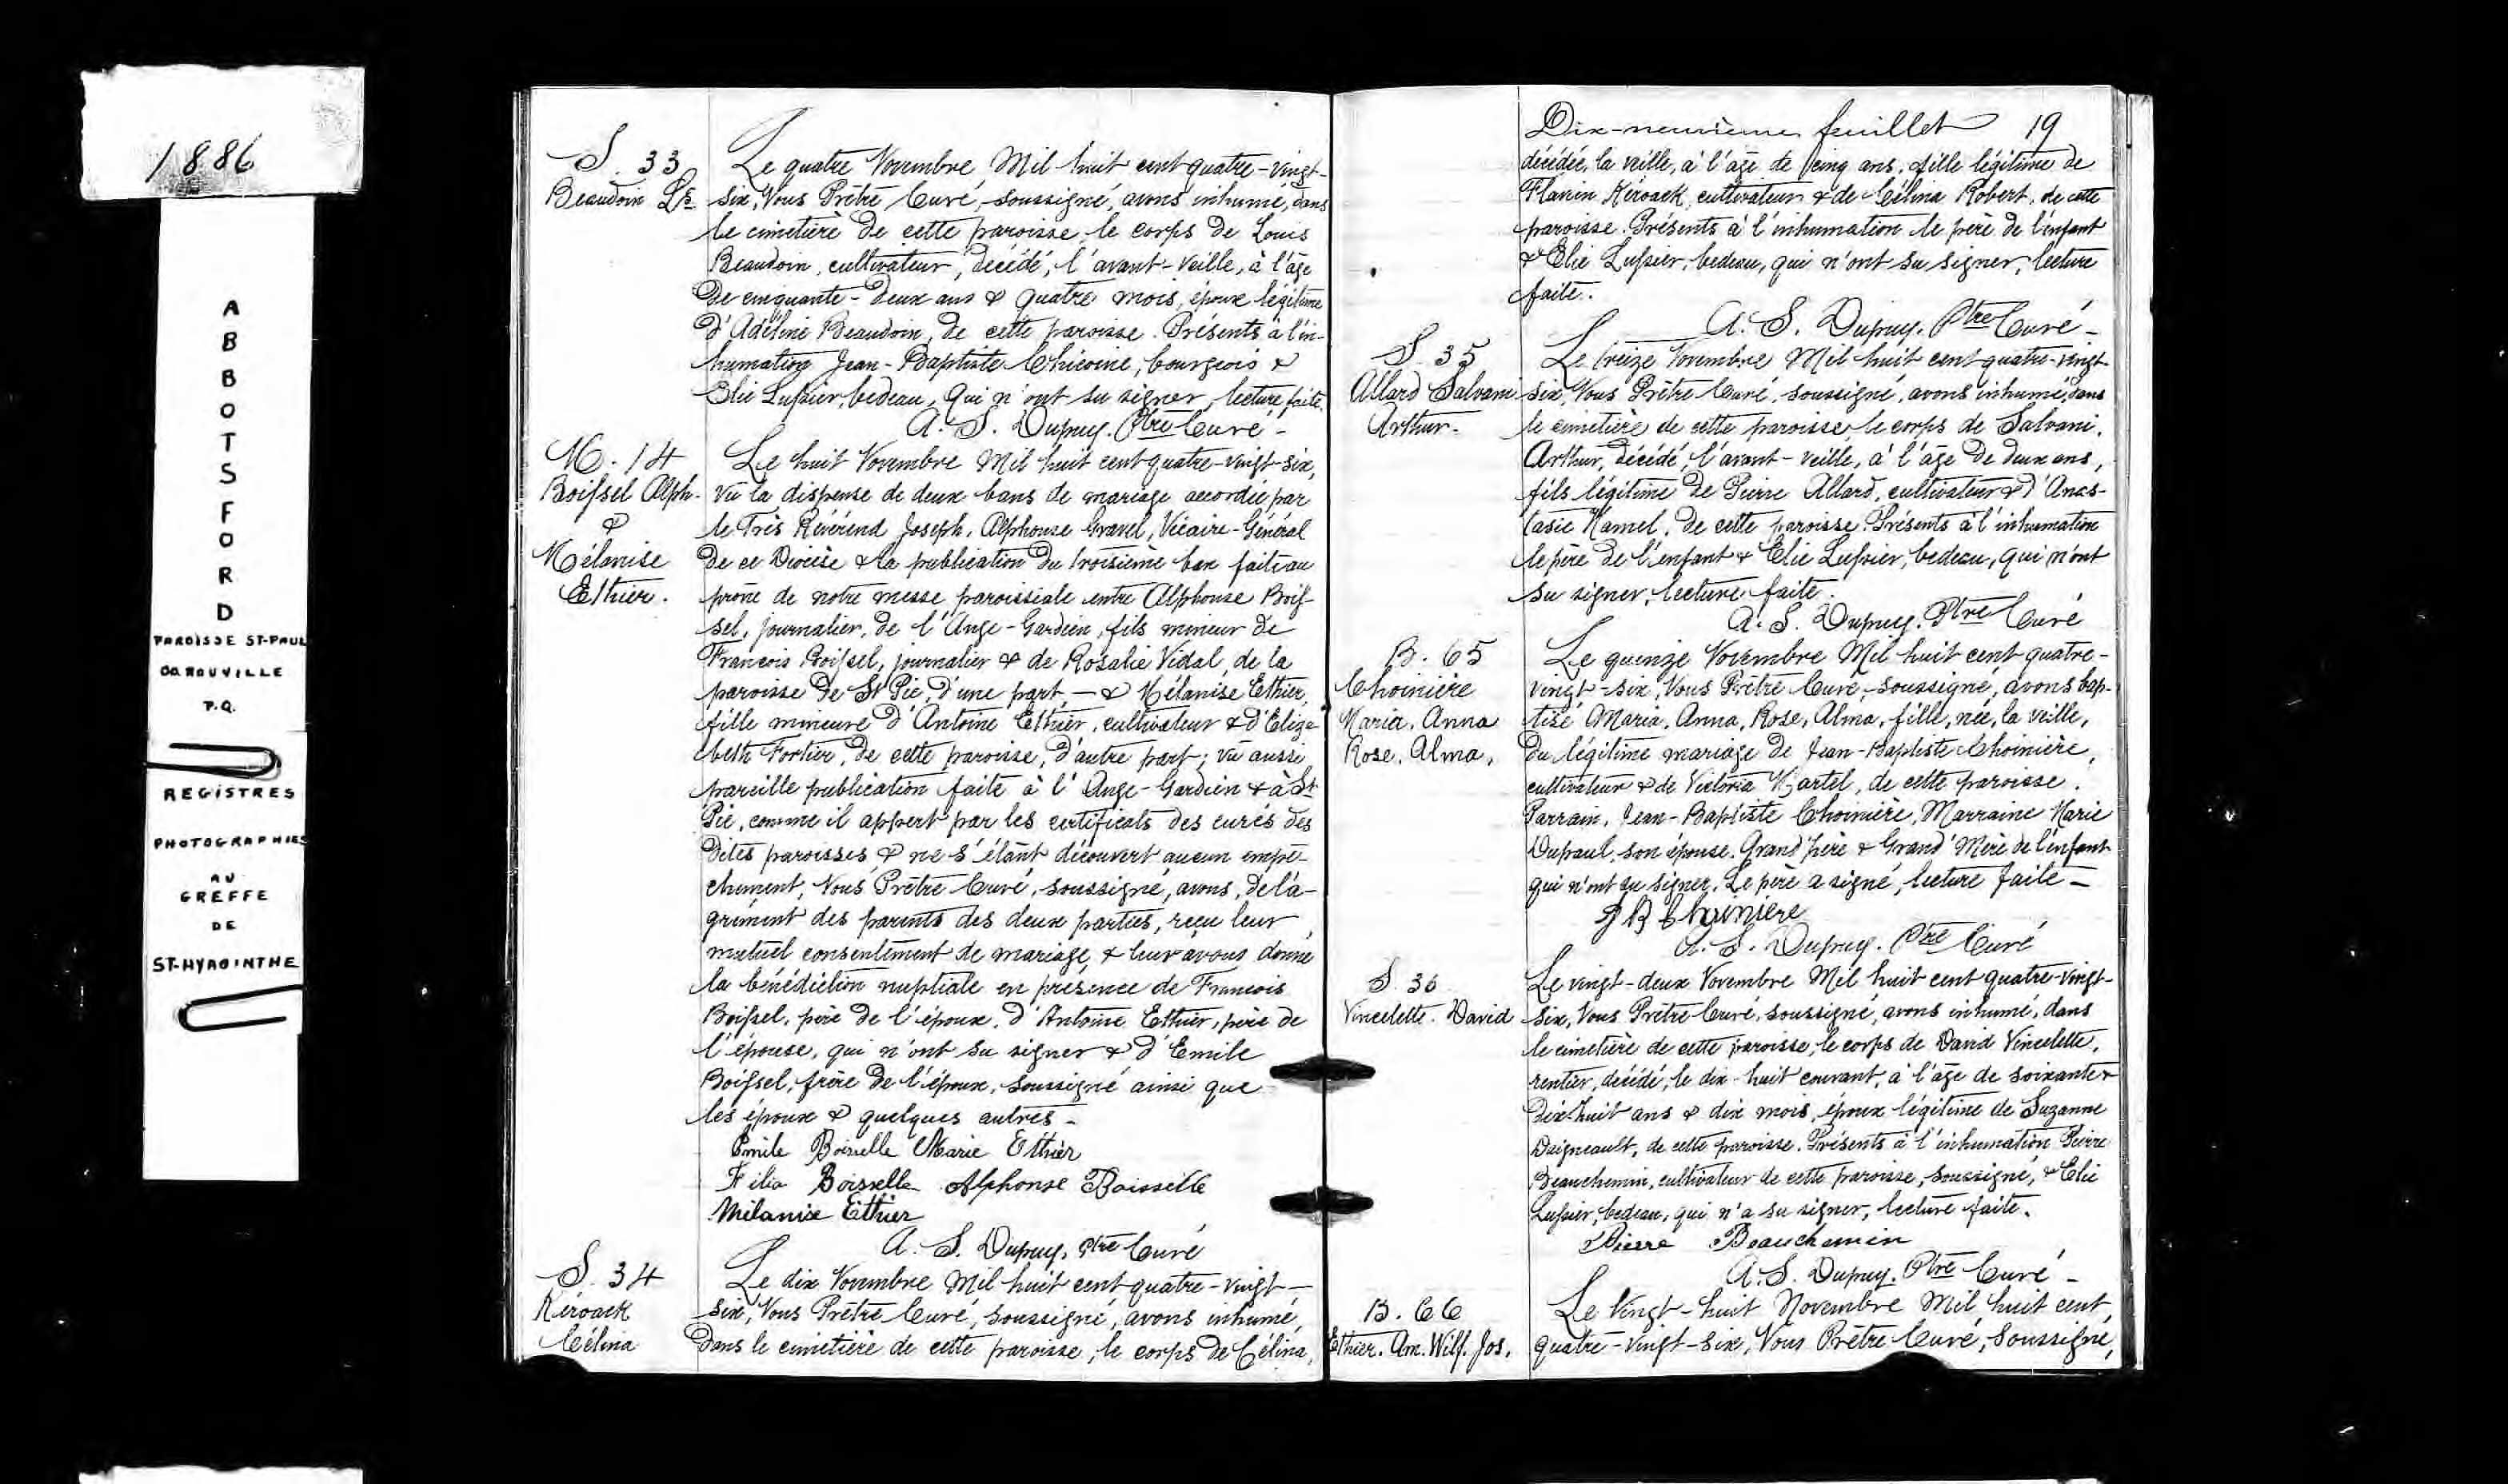 1886
A
B
B
O
T
S
F
O
R
D
PAROISSE ST-PAUL
CO. ROUVILLE
P.Q.
REGISTRES
PHOTOGRAPHIES
AU
GREFFE
DE
ST-HYACINTHE
S. 33
Beaudoin Ls
Le quatre Novembre Mil huit cent quatre-vingt-
six, Nous Prêtre Curé, soussigné, avons inhumé, dans
le cimetière de cette paroisse, le corps de Louis
Beaudoin, cultivateur, décédé, l'avant-veille, à l'âge
de cinquante-deux ans & quatre mois, époux légitime
d'Adéline Beaudoin, de cette paroisse. Présents à l'in-
humation Jean-Baptiste Chicoine, bourgeois &
Elie Lussier, bedeau, qui n'ont su signer, lecture faite.
A. S. Dupuy. Ptre Curé -
M. 14
Boissel Alph.
&
Mélanise
Ethier.
Le huit Novembre Mil huit cent quatre-vingt-six,
vu la dispense de deux bans de mariage accordée par
le Très Révérend Joseph, Alphonse Gravel, Vicaire-Général
de ce Diocèse & la publication du troisième ban faite au
prône de notre messe paroissiale entre Alphonse Bois-
sel, journalier, de l'Ange-Gardien, fils mineur de
Francois Boissel, journalier & de Rosalie Vidal, de la
paroisse de St Pie, d'une part, — & Mélanise Ethier,
fille mineure d'Antoine Ethier, cultivateur & d'Eliza-
beth Fortier, de cette paroisse, d'autre part; vu aussi
pareille publication faite à l'Ange-Gardien & à St
Pie, comme il appert par les certificats des curés des
dites paroisses & ne s'étant découvert aucun empê-
chement, Nous Prêtre Curé, soussigné, avons, de l'a-
grément des parents des deux parties, reçu leur
mutuel consentement de mariage & leur avons donné
la bénédiction nuptiale en présence de Francois
Boissel, père de l'époux, d'Antoine Ethier, père de
l'épouse, qui n'ont su signer & d'Emile
Boissel, frère de l'époux, soussigné ainsi que
les époux & quelques autres -
Emile Boisselle Marie Ethier
Filia Boisselle Alphonse Boisselle
Mélanise Ethier
A. S. Dupuy, Ptre Curé
S. 34
Kéroack
Célina
Le dix Novembre Mil huit cent quatre-vingt-
six, Nous Prêtre Curé, soussigné, avons inhumé,
dans le cimetière de cette paroisse, le corps de Célina,
Dix-neuvième feuillet 19
décédée, la veille, à l'âge de cinq ans, fille légitime de
Flavien Kéroack, cultivateur & de Célina Robert, de cette
paroisse. Présents à l'inhumation le père de l'enfant
& Elie Lussier, bedeau, qui n'ont su signer, lecture
faite.
A. S. Dupuy. Ptre Curé -
S. 35
Allard Salvani
Arthur.
Le treize Novembre Mil huit cent quatre-vingt-
six, Nous Prêtre Curé, soussigné, avons inhumé, dans
le cimetière de cette paroisse, le corps de Salvani,
Arthur, décédé, l'avant-veille, à l'âge de deux ans,
fils légitime de Pierre Allard, cultivateur & d'Anas-
tasie Hamel, de cette paroisse. Présents à l'inhumation
le père de l'enfant & Elie Lussier, bedeau, qui n'ont
su signer, lecture faite.
A. S. Dupuy. Ptre Curé
B. 65
Choinière
Maria. Anna
Rose. Alma.
Le quinze Novembre Mil huit cent quatre-
vingt-six, Nous Prêtre Curé, soussigné, avons bap-
tisé Maria, Anna, Rose, Alma, fille, née, la veille,
du légitime mariage de Jean-Baptiste Choinière,
cultivateur & de Victoria Martel, de cette paroisse.
Parrain, Jean-Baptiste Choinière, Marraine Marie
Dupaul, son épouse. Grand'père & Grand'Mère de l'enfant
qui n'ont su signer. Le père a signé, lecture faite -
J B Choiniere
A. S. Dupuy. Ptre Curé
S. 36
Vincelette. David
Le vingt-deux Novembre Mil huit cent quatre-vingt-
six, Nous Prêtre Curé, soussigné, avons inhumé, dans
le cimetière de cette paroisse, le corps de David Vincelette,
rentier, décédé, le dix-huit courant, à l'âge de soixante &
dix-huit ans & dix mois, époux légitime de Suzanne
Daigneault, de cette paroisse. Présents à l'inhumation Pierre
Beauchemin, cultivateur de cette paroisse, soussigné, & Elie
Lussier, bedeau, qui n'a su signer, lecture faite.
Pierre Beauchemin
A. S. Dupuy. Ptre Curé -
B. 66
Ethier. Am. Wilf. Jos.
Le Vingt-huit Novembre Mil huit cent
quatre-vingt-six, Nous Prêtre Curé, soussigné,